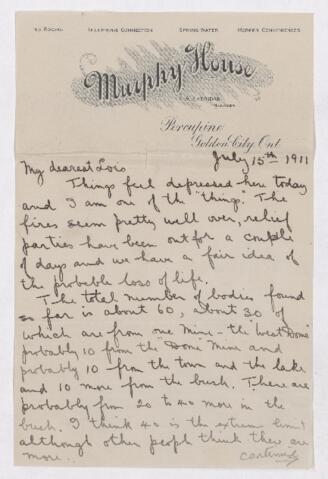 50 ROOMS TELEPHONE CONNECTION SPRING WATER MODERN CONVENIENCES
Murphy House
SHERIDAN,
MANAGER
Porcupine
Golden City, Ont.
July 15th 1911
My dearest Lois
Things feel depressed here today
and I am one of the "things". The
fires seem pretty well over, relief
parties have been out for a couple
of days and we have a fair idea of
the probable loss of life.
The total number of bodies found
so far is about 60, about 30 of
which are from one mine - the West Dome
probably 10 from the "Dome" Mine and
probably 10 from the town and the lake
and 10 more from the bush. There are
probably from 20 to 40 more in the
bush. I think 40 is the extreme limit
although other people think there are
more.